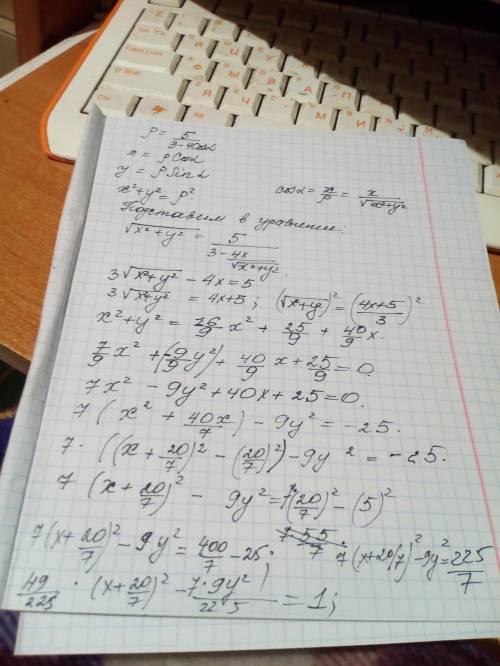 ρ = 5/(3-4cosα)
x = ρ cosα
y = ρ sinα
x²+y² = ρ²    cosα = x/ρ = x/√(x²+y²)
Подставим в уравнение:
√(x²+y²) = 5/(3 - 4x/√(x²+y²))
3√(x²+y²) - 4x = 5
3√(x²+y²) = 4x+5; (√(x+y²))² = ((4x+5)/3)²
x²+y² = 16/9 x² + 25/9 + 40/9 x.
7/9 x² + (-9/9 y²) + 40/9 x + 25/9 = 0.
7x² - 9y² + 40x + 25 = 0.
7(x² + 40x/7) - 9y² = -25.
7·((x + 20/7)² - (20/7)²) - 9y² = -25.
7(x + 20/7)² - 9y² = 7·(20/7)² - (5)²
7(x+20/7)² - 9y² = 400/7 - 25· 7(x+20/7)² - 9y² = 225/7
49/225 · (x+20/7)² - 7·9y²/225 = 1;